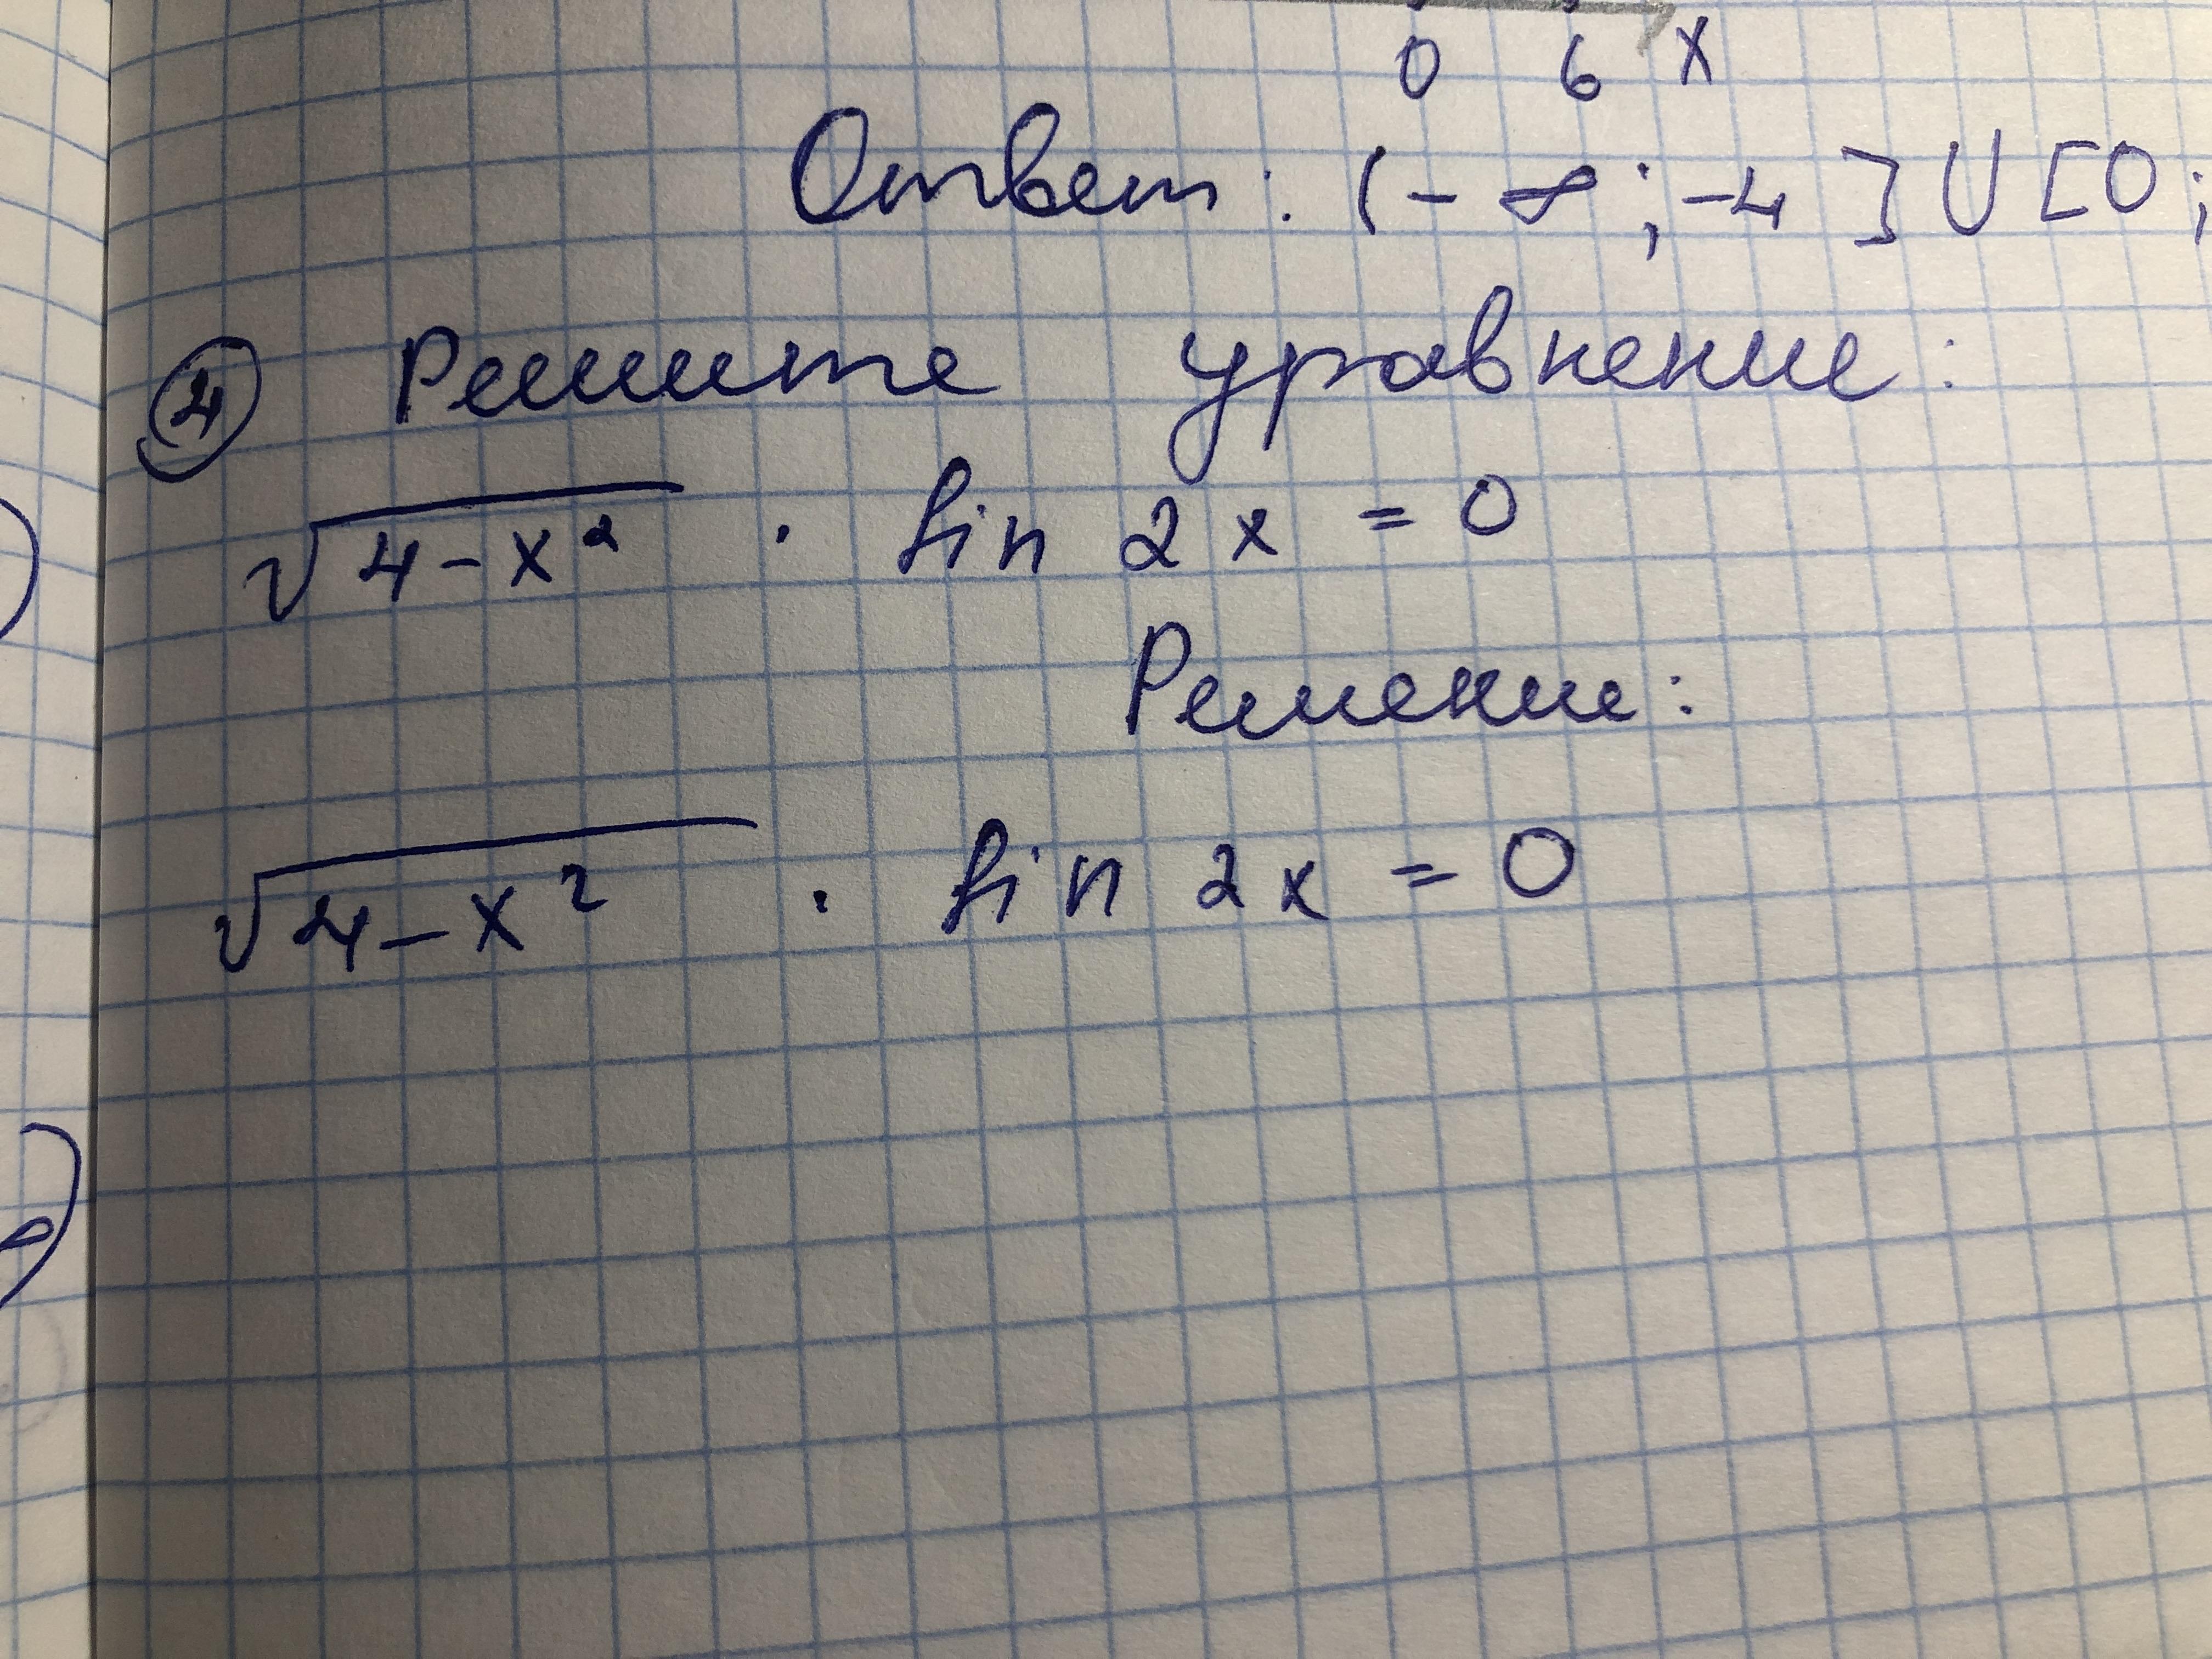 0 6 x
Ответ: (-∞; -4] ∪ [0;
④ Решите уравнение:
√(4-x²) · sin 2x = 0
Решение:
√(4-x²) · sin 2x = 0